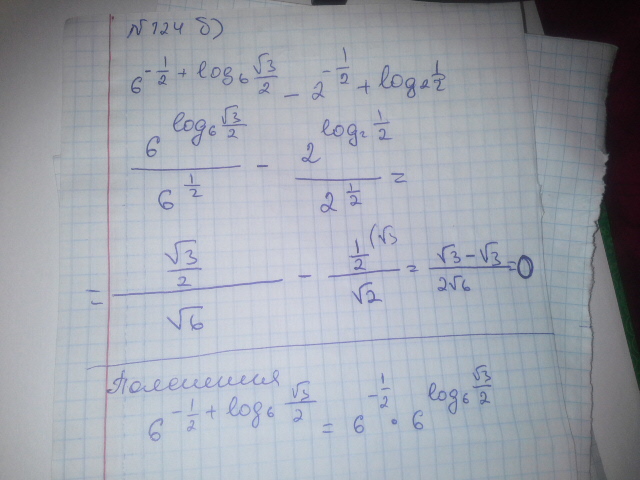 № 124 б)
6^{-\frac{1}{2} + log_6 \frac{√3}{2}} - 2^{-\frac{1}{2} + log_2 \frac{1}{2}}
\frac{6^{log_6 \frac{√3}{2}}}{6^{\frac{1}{2}}} - \frac{2^{log_2 \frac{1}{2}}}{2^{\frac{1}{2}}} =
= \frac{\frac{√3}{2}}{√6} - \frac{\frac{1}{2} (√3}{√2} = \frac{√3 - √3}{2√6} = 0
Пояснения
6^{-\frac{1}{2} + log_6 \frac{√3}{2}} = 6^{-\frac{1}{2}} · 6^{log_6 \frac{√3}{2}}